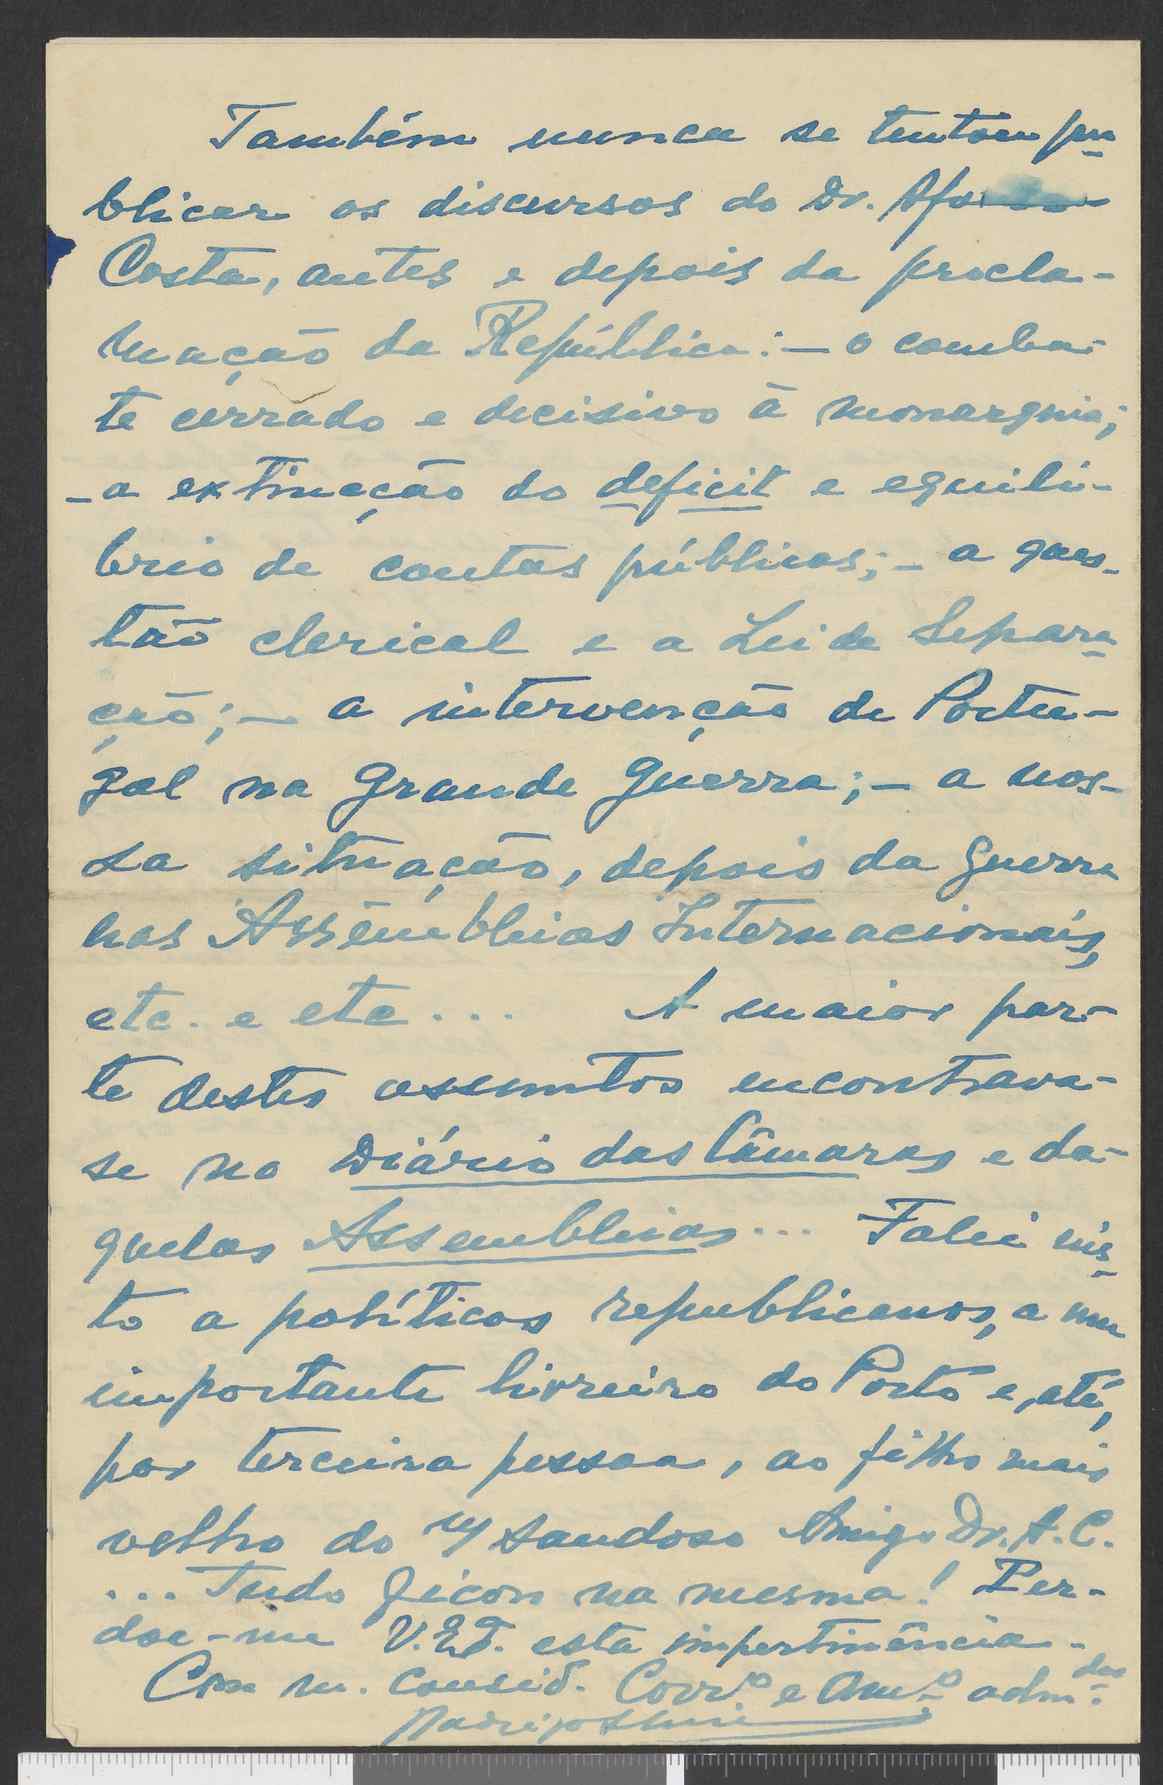 Também nunca se tentou pu-
blicar os discursos do Dr. Afonso
Costa, antes e depois da procla-
mação da República: — o comba-
te cerrado e decisivo à monarquia;
— a extincção do deficit e equilí-
brio de contas públicas; — a ques-
tão clerical e a Lei da Separa-
ção; — a intervenção de Portu-
gal na Grande Guerra; — a nos-
sa situação, depois da guerra
nas Assembleias Internacionais,
etc. e etc... A maior par-
te destes assuntos encontrava-
se no Diário das Câmaras e da-
quelas Assembleias... Falei nis-
to a políticos republicanos, a um
importante livreiro do Porto e, até,
por terceira pessoa, ao filho mais
velho do m/ saudoso Amigo Dr. A. C.
... Tudo ficou na mesma! Per-
doe-me V. Ex.ª esta impertinência.
Com m. consid. Corr.º e Am.º adm.dor